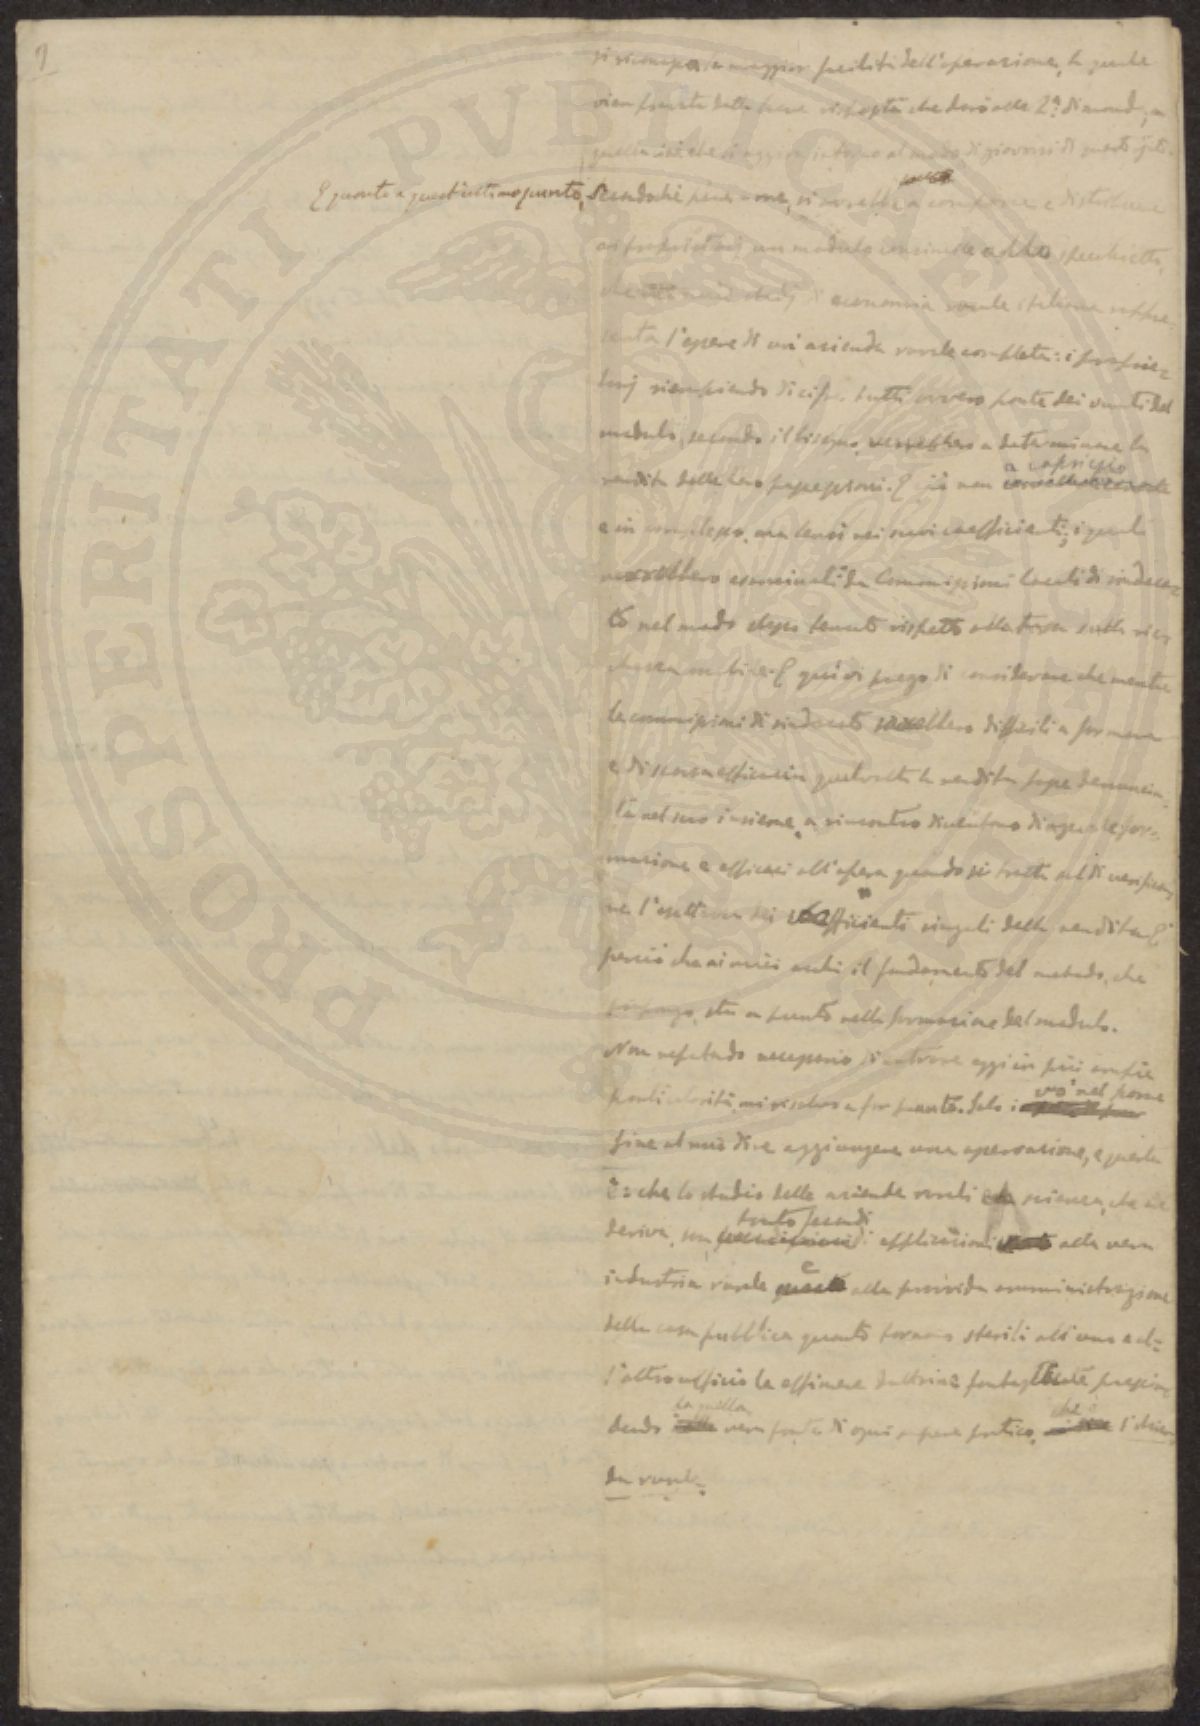 9
si ricompra in maggior facilità dell'operazione, la quale
vien provata dalla breve risposta che darò alla 2ª dimanda,
quella cioè che si aggira intorno al modo di giovarsi di questi
E quanto a quest'ultimo punto, secondochè pare a me, si avrebbe a comporre e distribuire
ai proprietarj un modulo consimile a quello specchietto,
che studj di economia rurale italiana rappre=
senta l'opere di un'azienda rurale completa: i proprie=
tarj riempiendo di cifre tutti ovvero parte dei vuoti del
modulo, secondo il bisogno, verrebbero a determinare la
rendita delle loro possessioni. E ciò non a capriccio
e in complesso, ma bensì nei suoi coefficienti; i quali
verrebbero esaminati da Commissioni locali di sindaca=
to nel modo stesso tenuto rispetto alla tassa sulla ric=
chezza mobile. E qui vi prego di considerare che mentre
le commissioni di sindacato sarebbero difficili a formare
e di scarsa efficacia qualora la rendita fosse denuncia=
ta nel suo insieme, a rincontro diventano di agevole for=
mazione e efficaci all'opera quando si tratta di verifica=
re l'esattezza dei coefficienti singoli della rendita. E'
perciò che ai miei occhi il fondamento del metodo, che
propongo, sta appunto nella formazione del modulo.
Non reputando necessario di entrare oggi in più ampie
particolarità, mi risolvo a far punto. Solo vo' nel porre
fine al mio dire aggiungere una osservazione, e questa
è: che lo studio delle aziende rurali e la scienza, che ne
deriva, son tanto fecondi di applicazioni alla vera
industria rurale e alla provvida amministrazione
della cosa pubblica quanto tornano sterili all'uno e al=
l'altro ufficio le effimere dottrine fantasticate prescin=
dendo da quella vera fonte di ogni sapere pratico, che è l'azien=
da rurale.
PROSPERITATI PVBLICAE